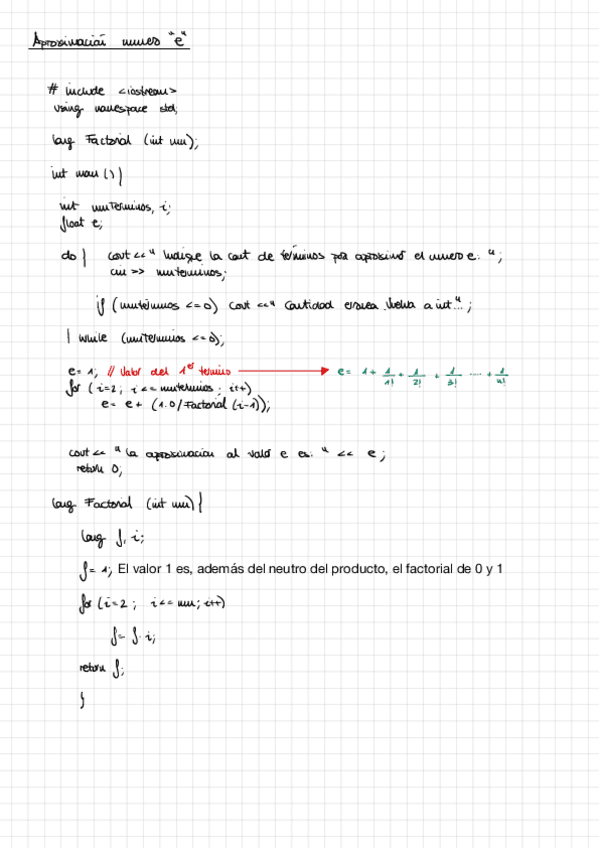 Aproximación número "e"
# include <iostream>
using namespace std;
long Factorial (int num);
int main () {
int numTerminos, i;
float e;
do { cout << " Indique la cant de términos par aproximar el numero e: " ;
cin >> numterminos;
if (numterminos <= 0) cout << " Cantidad erronea. Vuelva a int... " ;
} while (numTerminos <= 0);
e = 1; // Valor del 1er termino → e = 1 + 1/1! + 1/2! + 1/3! ..... + 1/n!
for ( i=2 ; i <= numterminos ; i++)
e = e + (1.0 / Factorial (i-1));
cout << " La aproximacion al valor e es: " << e ;
return 0;
long Factorial (int num) {
long f, i;
f = 1; El valor 1 es, además del neutro del producto, el factorial de 0 y 1
for (i=2 ; i <= num ; i++)
f = f · i;
return f;
}